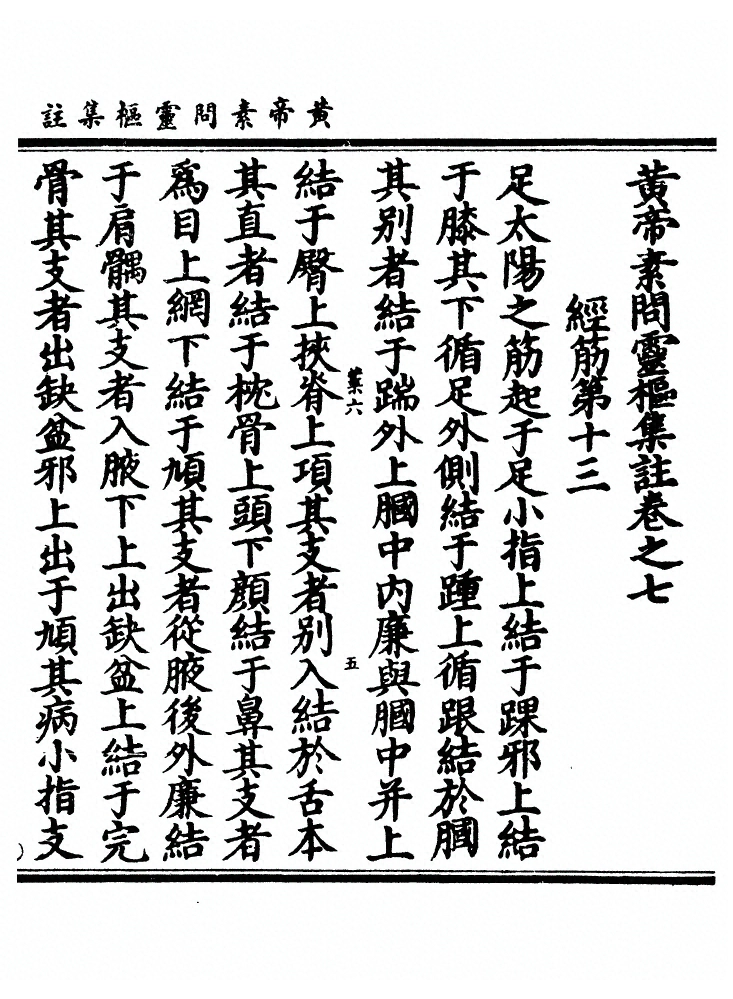 黃帝素問靈樞集註
黃帝素問靈樞集註卷之七
經筋第十三
足太陽之筋起于足小指上結于踝邪上結
于膝其下循足外側結于踵上循跟結於膕
其別者結于踹外上膕中內廉與膕中并上
結于臀上挾脊上項其支者別入結於舌本
其直者結于枕骨上頭下顏結于鼻其支者
爲目上網下結于頄其支者從腋後外廉結
于肩髃其支者入腋下上出缺盆上結于完
骨其支者出缺盆邪上出于頄其病小指支
業六
五